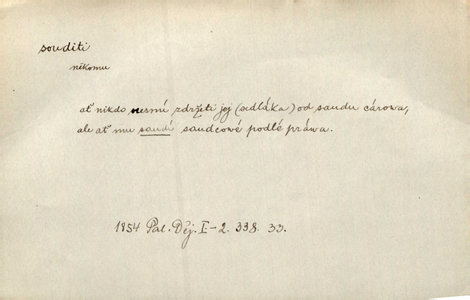 souditi
někomu
ať nikdo nesmí zdržeti jej (sedláka) od saudu cárowa,
ale ať mu saudí saudcowé podlé práwa.
1854 Pal. Děj. I-2. 338. 33.